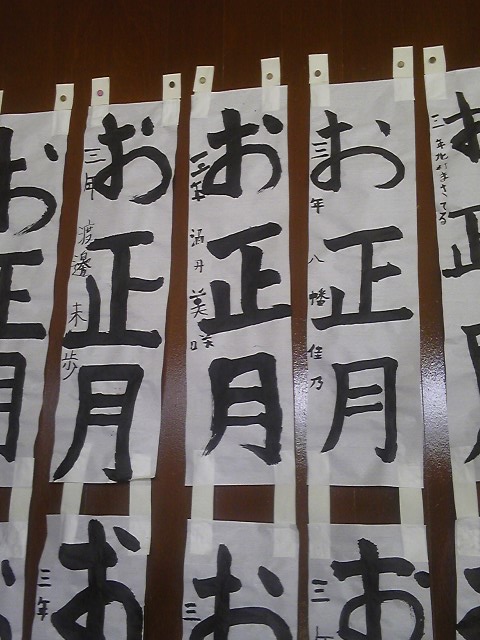 お正月
三年
お正月
三年 八幡佳乃
お正月
三年 涌井美咲
お正月
三年 渡邊未歩
お正月
お
三
お
三
お
三年